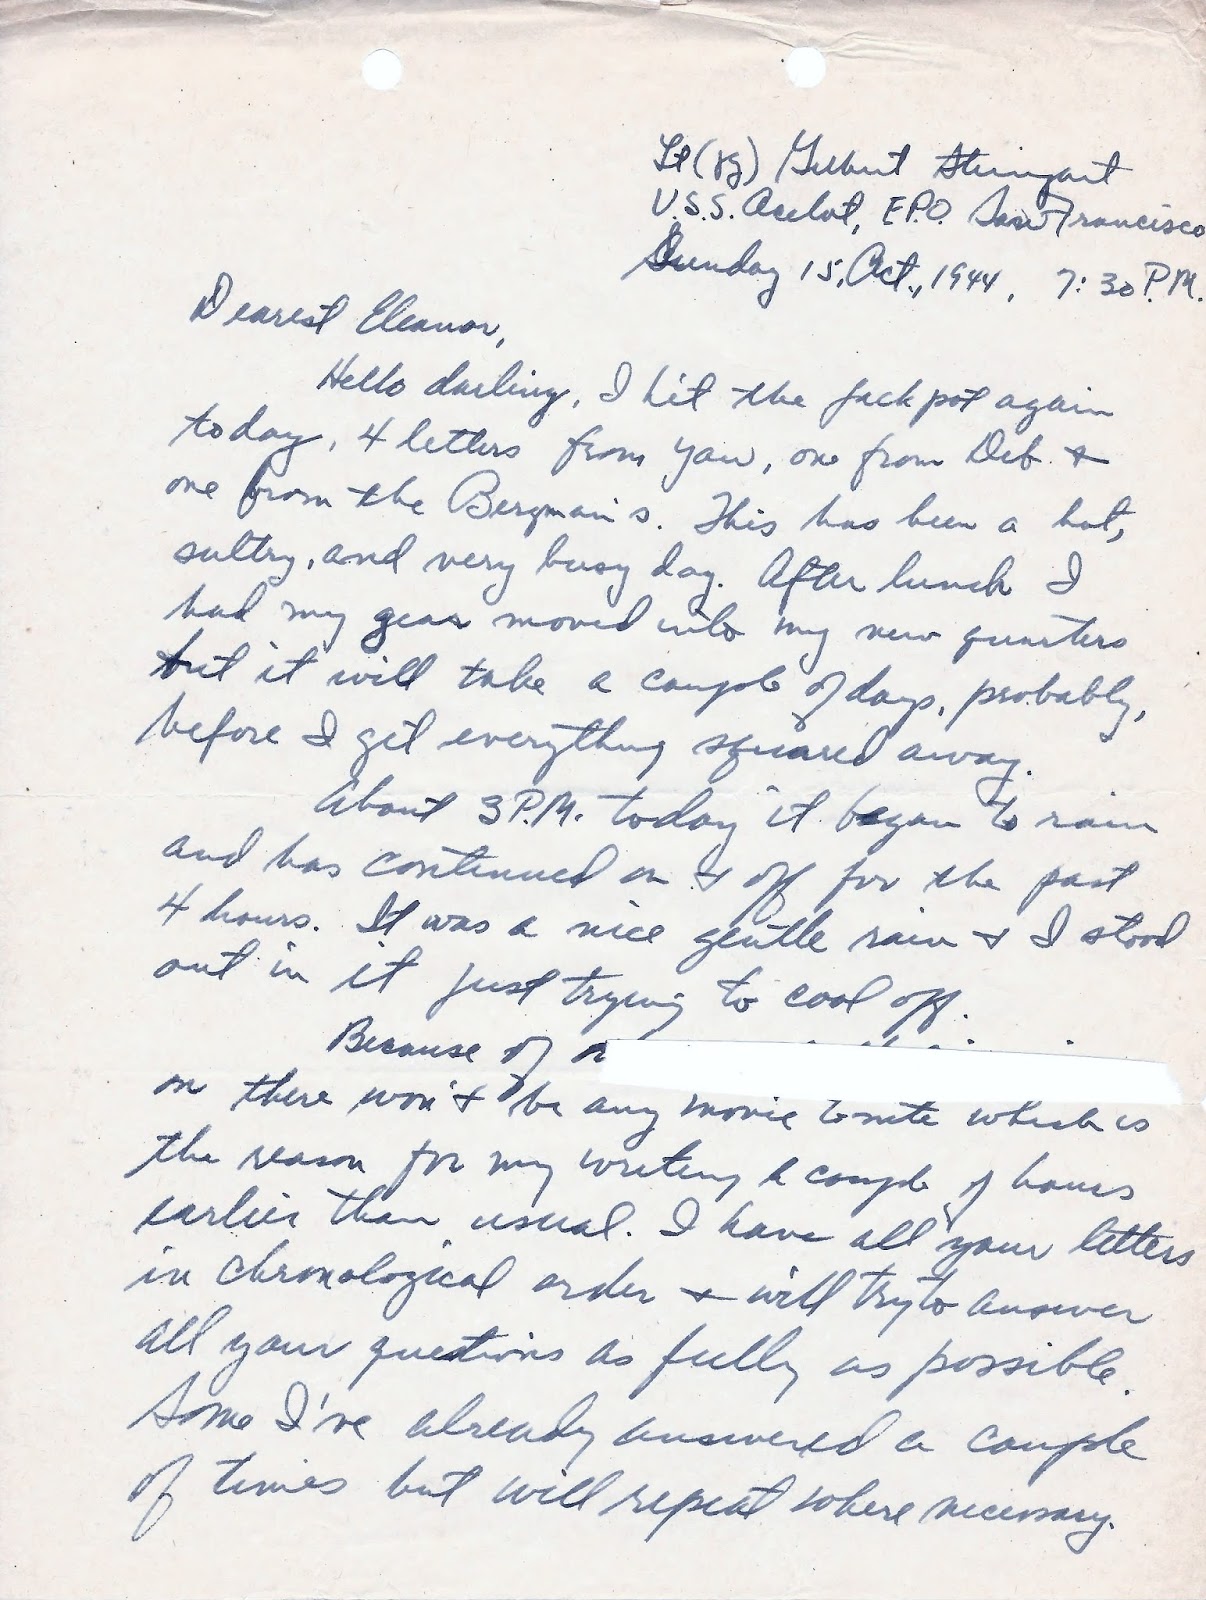 Lt (jg) Gilbert Steingart
U.S.S. Ocelot, F.P.O. San Francisco
Sunday 15, Oct., 1944, 7:30 P.M.
Dearest Eleanor,
Hello darling, I hit the jackpot again
today, 4 letters from you, one from Deb &
one from the Bergman's. This has been a hot,
sultry, and very busy day. After lunch I
had my gear moved into my new quarters
but it will take a couple of days, probably,
before I get everything squared away.
About 3 P.M. today it began to rain
and has continued on & off for the past
4 hours. It was a nice gentle rain & I stood
out in it just trying to cool off.
Because of
on there won't be any movie tonite which is
the reason for my writing a couple of hours
earlier than usual. I have all your letters
in chronological order & will try to answer
all your questions as fully as possible.
Some I've already answered a couple
of times but will repeat where necessary.